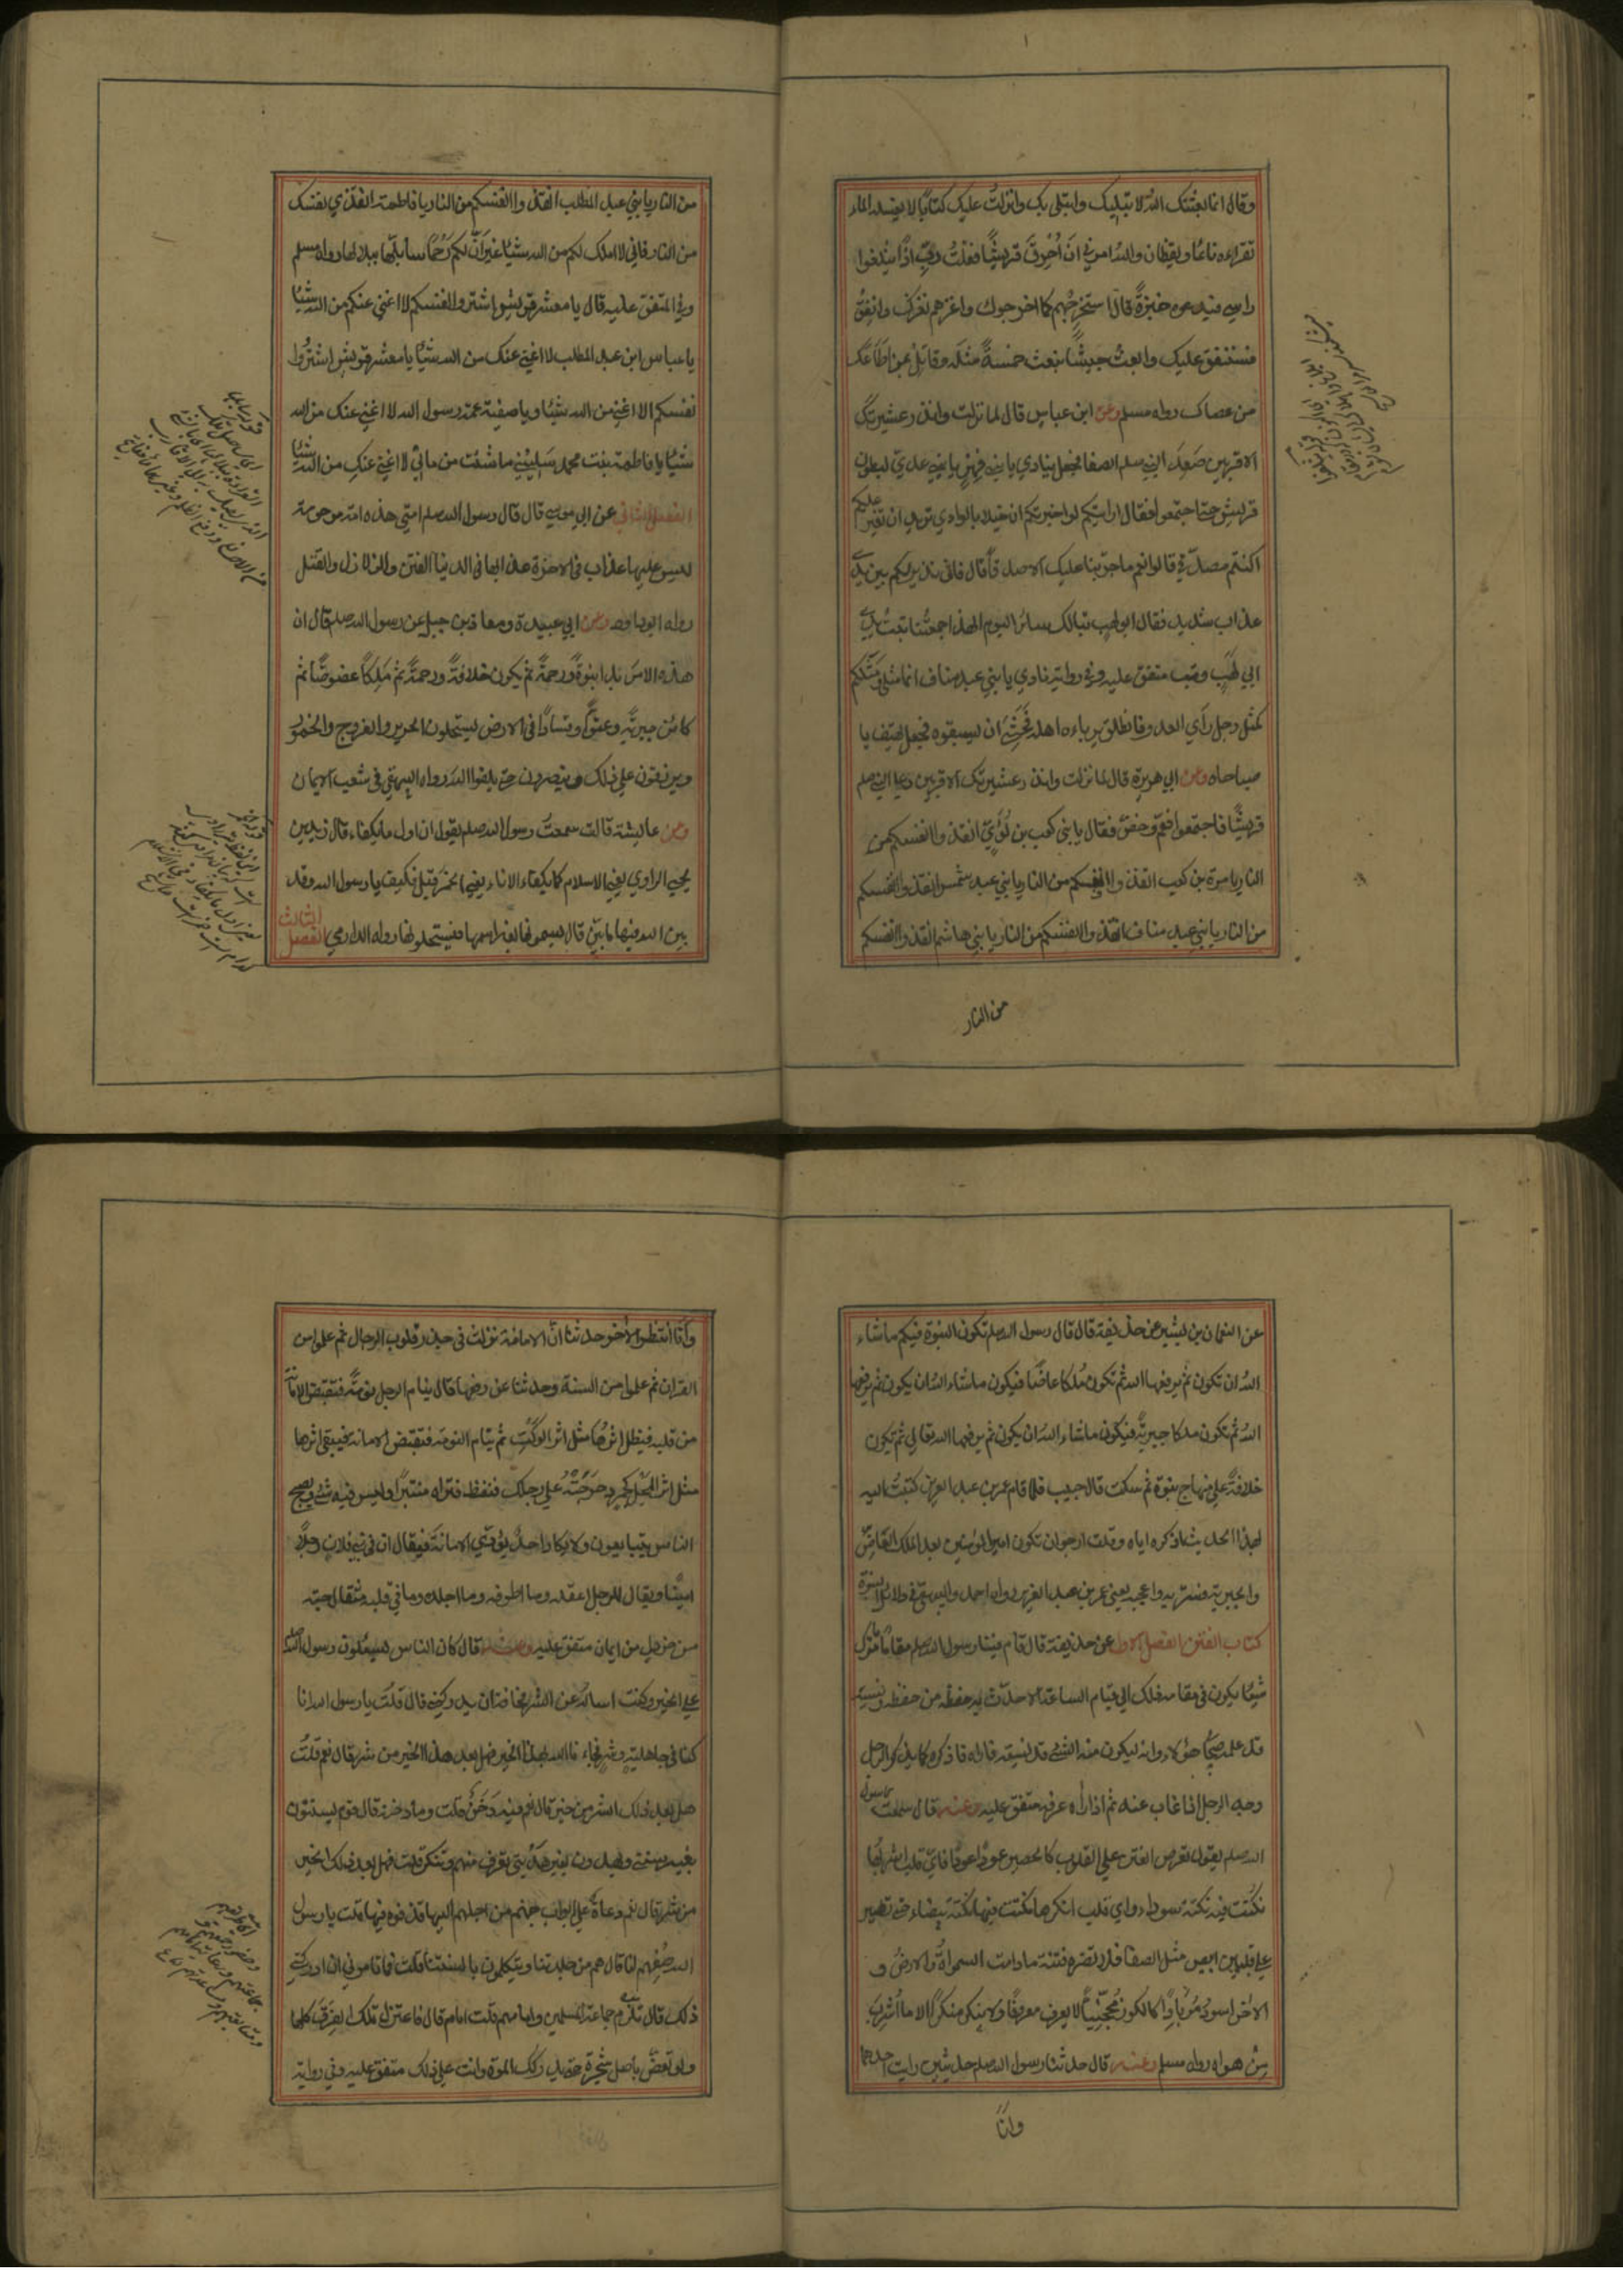 وقال انما بعثتك الله لابتليك وابتلى بك وانزلت عليك كتابا لا يغسله الماء
تقراءه نائما ويقظان والله امرني ان احرق قريشا فقلت رب اذا يثلغوا
راسي فيدعوه خبزة قال استخرجهم كما اخرجوك واغزهم نغزك وانفق
فسننفق عليك وابعث جيشا نبعث خمسة مثله وقاتل بمن اطاعك
من عصاك رواه مسلم وعن ابن عباس قال لما نزلت وانذر عشيرتك
الاقربين صعد النبي صلعم الصفا فجعل ينادي يا بني فهر يا بني عدي لبطون
قريش حتى اجتمعوا فقال ارايتكم لو اخبرتكم ان خيلا بالوادي تريد ان تغير عليكم
اكنتم مصدقي قالوا نعم ما جربنا عليك الا صدقا قال فاني نذير لكم بين يدي
عذاب شديد فقال ابو لهب تبا لك سائر اليوم الهذا جمعتنا تبت يدي
ابي لهب وتب متفق عليه وفي رواية نادي يا بني عبد مناف انما مثلي ومثلكم
كمثل رجل رأي العدو فانطلق يرباءه اهله فخشي ان يسبقوه فجعل يهتف يا
صباحاه وعن ابي هريرة قال لما نزلت وانذر عشيرتك الاقربين دعا النبي صلعم
قريشا فاجتمعوا فعم وخص فقال يا بني كعب بن لؤي انقذوا انفسكم من
النار يا مرة بن كعب انقذوا انفسكم من النار يا بني عبد شمس انقذوا انفسكم
من النار يا بني عبد مناف انقذوا انفسكم من النار يا بني هاشم انقذوا انفسكم
من النار
من النار يا بني عبد المطلب انقذوا انفسكم من النار يا فاطمة انقذي نفسك
من النار فاني لا املك لكم من الله شيئا غير ان لكم رحما سأبلها ببلالها رواه مسلم
وفي المتفق عليه قال يا معشر قريش اشتروا انفسكم لا اغني عنكم من الله شيئا
يا عباس ابن عبد المطلب لا اغني عنك من الله شيئا يا معشر قريش اشتروا
نفسكم الا اغني من الله شيئا ويا صفية عمة رسول الله لا اغني عنك من الله
شيئا يا فاطمة بنت محمد سليني ما شئت من مالي لا اغني عنك من الله شيئا
الفصل الثاني عن ابي موسي قال قال رسول الله صلعم امتي هذه امة مرحومة
ليس عليها عذاب في الاخرة عذابها في الدنيا الفتن والزلازل والقتل
رواه ابو داود وعن ابي عبيدة ومعاذ بن جبل عن رسول الله صلعم قال ان
هذه الامر بدا نبوة ورحمة ثم يكون خلافة ورحمة ثم ملكا عضوضا ثم
كائن جبرية وعتوا وفسادا في الارض يستحلون الحرير والفروج والخمور
ويرزقون علي ذلك وينصرون حتى يلقوا الله رواه البيهقي في شعب الايمان
وعن عايشة قالت سمعت رسول الله صلعم يقول ان اول ما يكفاء قال زيد بن
يحيي الراوي يعني الاسلام كما يكفاء الاناء يعني الخمر قيل فكيف يا رسول الله وقد
بين الله فيها ما بين قال يسمونها بغير اسمها فيستحلونها رواه الدارمي الفصل الثالث
عن النعمان بن بشير عن حذيفة قال قال رسول الله صلعم تكون النبوة فيكم ما شاء
الله ان تكون ثم يرفعها الله ثم تكون ملكا عاضا فيكون ما شاء الله ان يكون ثم يرفعها
الله ثم تكون ملكا جبرية فيكون ما شاء الله ان يكون ثم يرفعها الله تعالي ثم تكون
خلافة علي منهاج نبوة ثم سكت قال حبيب فلما قام عمر بن عبد العزيز كتبت اليه
بهذا الحديث اذكره اياه وقلت ارجو ان تكون امير المؤمنين بعد الملك العاض
والجبرية فسر به واعجبه يعني عمر بن عبد العزيز رواه احمد والبيهقي في دلائل النبوة
كتاب الفتن الفصل الاول عن حذيفة قال قام فينا رسول الله صلعم مقاما ما ترك
شيئا يكون في مقامه ذلك الي قيام الساعة الا حدث به حفظه من حفظه ونسيه
قد علمه اصحابي هؤلاء وانه ليكون منه الشئ قد نسيته فاراه فاذكره كما يذكر الرجل
وجه الرجل اذا غاب عنه ثم اذا راه عرفه متفق عليه وعنه قال سمعت رسول
الله صلعم يقول تعرض الفتن علي القلوب كالحصير عودا عودا فاي قلب اشربها
نكتت فيه نكتة سوداء واي قلب انكرها نكتت فيها نكتة بيضاء حتى تصير
علي قلبين ابيض مثل الصفا فلا تضره فتنة ما دامت السموات والارض و
الاخر اسود مربادا كالكوز مجخيا لا يعرف معروفا ولا ينكر منكرا الا ما اشرب
من هواه رواه مسلم وعنه قال حدثنا رسول الله صلعم حديثين رايت احدهما
وانا
وانا انتظر الاخر حدثنا ان الامانة نزلت في جذر قلوب الرجال ثم علموا من
القران ثم علموا من السنة وحدثنا عن رفعها قال ينام الرجل نومة فتقبض الامانة
من قلبه فيظل اثرها مثل اثر الوكت ثم ينام النومة فتقبض الامانة فيبقي اثرها
مثل اثر المجل كجمر دحرجته علي رجلك فنفط فتراه منتبرا وليس فيه شئ ويصبح
الناس يتبايعون ولا يكاد احد يؤدي الامانة فيقال ان في بني فلان رجلا
امينا ويقال للرجل اعقله وما اظرفه وما اجلده وما في قلبه مثقال حبة
من خردل من ايمان متفق عليه وعنه قال كان الناس يسئلون رسول الله صلعم
علي الخير وكنت اساله عن الشر مخافة ان يدركني قال قلت يا رسول الله انا
كنا في جاهلية وشر فجاءنا الله بهذا الخير فهل بعد هذا الخير من شر قال نعم قلت
هل بعد ذلك الشر من خير قال نعم وفيه دخن قلت وما دخنه قال قوم يستنون
بغير سنتي ويهدون بغير هديي تعرف منهم وتنكر قلت فهل بعد ذلك الخير
من شر قال نعم دعاة علي ابواب جهنم من اجابهم اليها قذفوه فيها قلت يا رسول
الله صفهم لنا قال هم من جلدتنا ويتكلمون بالسنتنا قلت فما تامرني ان ادركني
ذلك قال تلزم جماعة المسلمين وامامهم قلت امام قال فاعتزل تلك الفرق كلها
ولو تعض باصل شجرة حتى يدركك الموت وانت علي ذلك متفق عليه وفي رواية